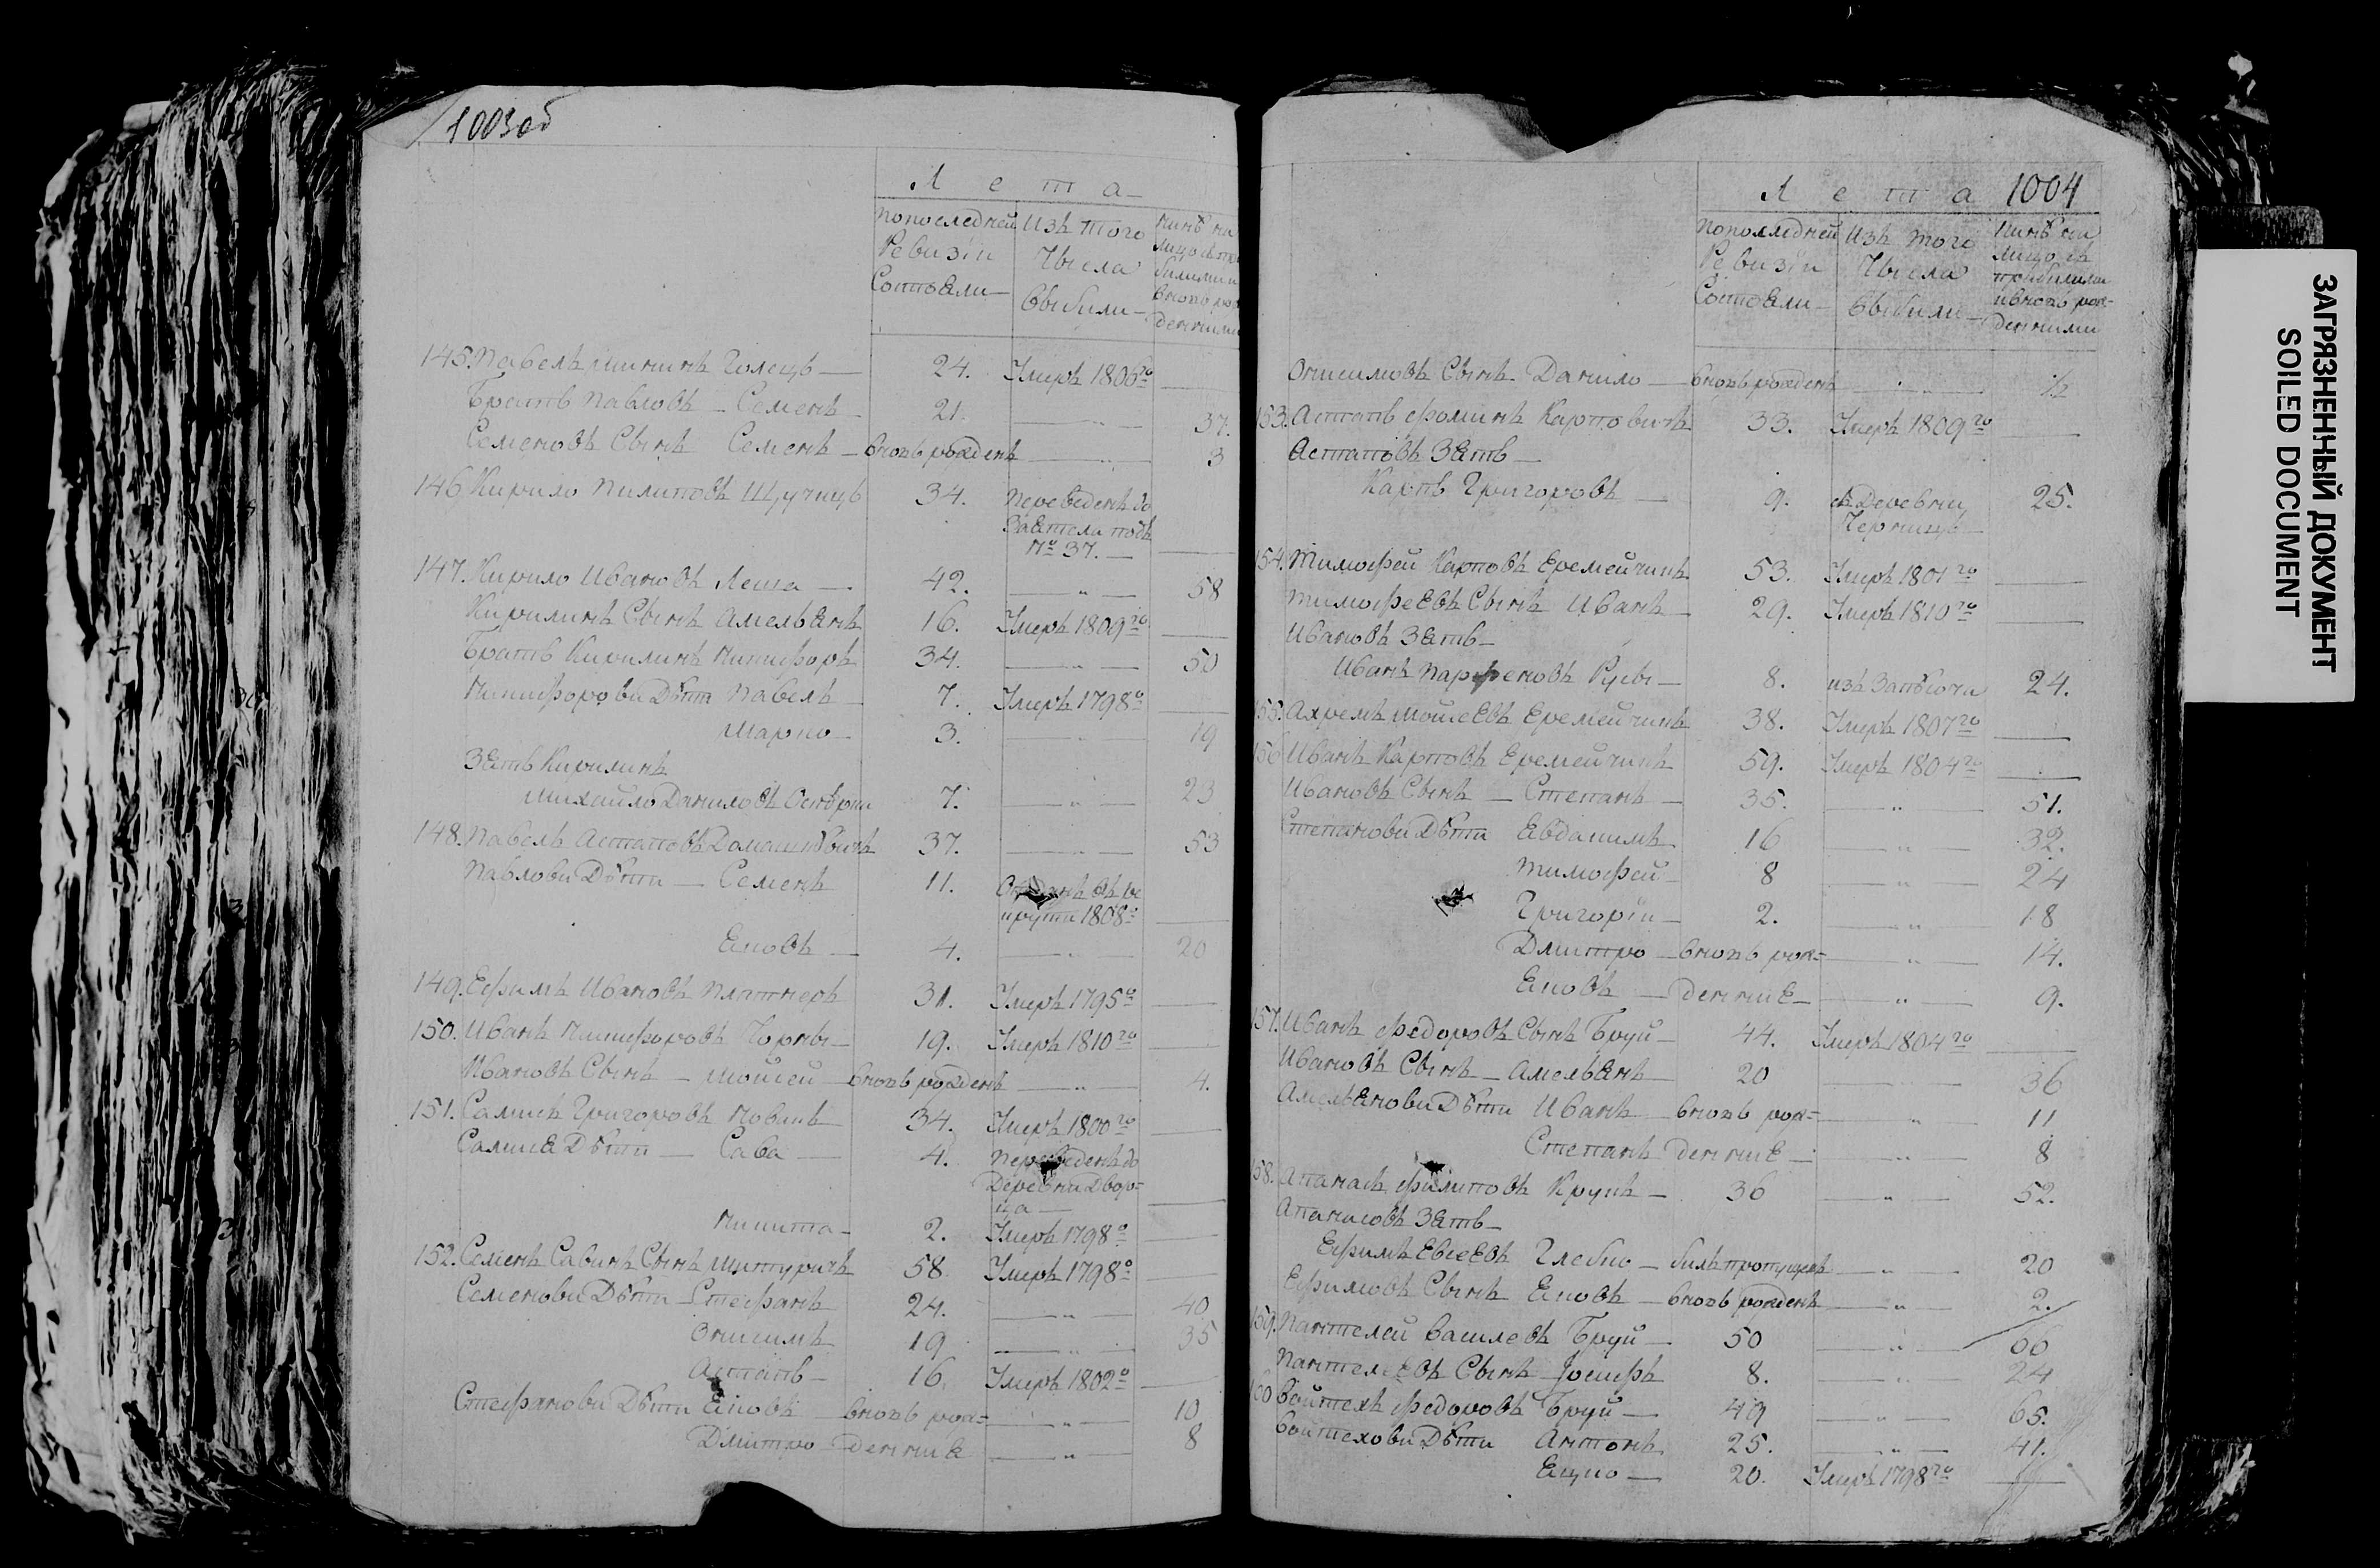 1003об
Лета
Попоследней Изъ того Нинѣ на
Ревизіи Числа лицо
Состояли Выбили
145. Павелъ Голецъ 24. Умеръ 1806го
Братъ Павловъ Семенъ 21. 37.
Семеновъ Сынъ Семенъ вновь рожденъ 3
146 Кирило Пилиповъ Щучицъ 34. Переведенъ до
Заетела подъ
№ 37.
147. Кирило Ивановъ Леша 42. 58
Кирилинъ Сынъ Амельянъ 16. Умеръ 1809го
Братъ Кирилинъ Никифоръ 34. 50
Никифорови Дѣти Павелъ 7. Умеръ 1798о
Марко 3. 19
Зять Кирилинъ
Михайло Даниловъ 7. 23
148. Павелъ Астаповъ 37. 53
Павлови Дѣти Семенъ 11. Отданъ въ ре
крути 1808о
Яковъ 4. 20
149. Ефимъ Ивановъ Платнеръ 31. Умеръ 1795о
150. Иванъ Никифоровъ Чорны 19. Умеръ 1810го
Ивановъ Сынъ Мойсей вновь рожденъ 4.
151. Григоровъ Новикъ 34. Умеръ 1800го
Дѣти Сава 4. Переведенъ до
Деревни Двор=
ца
Никита 2. Умеръ 1798о
152. Семенъ Савинъ Сынъ 58 Умеръ 1798о
Семенови Дѣти Стефанъ 24. 40
Онисимъ 19 35
Астапъ 16. Умеръ 1802о
Стефанови Дѣти Яковъ вновь рож= 10
Дмитро денние 8
1004
Лета
Пополледней Изъ того Нинѣ на
Ревизіи Числа лицо съ
Состояли Выбили прибилими
ивновь рож=
денними
Онисимовъ Сынъ Данило вновь рожденъ ½
153. Астапъ Фоминъ Карповичъ 33. Умеръ 1809го
Астаповъ Зять
Карпъ Григоровъ 9. съ Деревни 25.
154. Тимофей Карповъ Еремейчикъ 53. Умеръ 1801го
Тимофеевъ Сынъ Иванъ 29. Умеръ 1810го
Ивановъ Зять
Иванъ Парфеновъ 8. изъ 24.
155. Ахремъ Мойсеевъ Еремейчикъ 38. Умеръ 1807го
156 Иванъ Карповъ Еремейчикъ 59. Умеръ 1804го
Ивановъ Сынъ Степанъ 35. 51.
Степанови Дѣти Евдакимъ 16 32.
Тимофей 8 24
Григорій 2. 18
Дмитро вновь рож= 14.
Яковъ денние 9.
157. Иванъ Федоровъ Сынъ Бруй 44. Умеръ 1804го
Ивановъ Сынъ Амельянъ 20 36
Амельянови Дѣти Иванъ вновь рож= 11
Степанъ денние 8
158. Апанасъ Филиповъ Крукъ 36 52.
Апанасовъ Зять
Ефимъ Евсеевъ Глебко билъ пропущенъ 20
Ефимовъ Сынъ Яковъ вновь рожденъ 2.
159. Пантелей Василевъ Бруй 50 66
Пантелеевъ Сынъ Іосифъ 8. 24
160 Войтехъ Федоровъ Бруй 49 65.
Войтехови Дѣти Антонъ 25. 41.
Яцко 20. Умеръ 1798го
ЗАГРЯЗНЕННЫЙ ДОКУМЕНТ
SOILED DOCUMENT